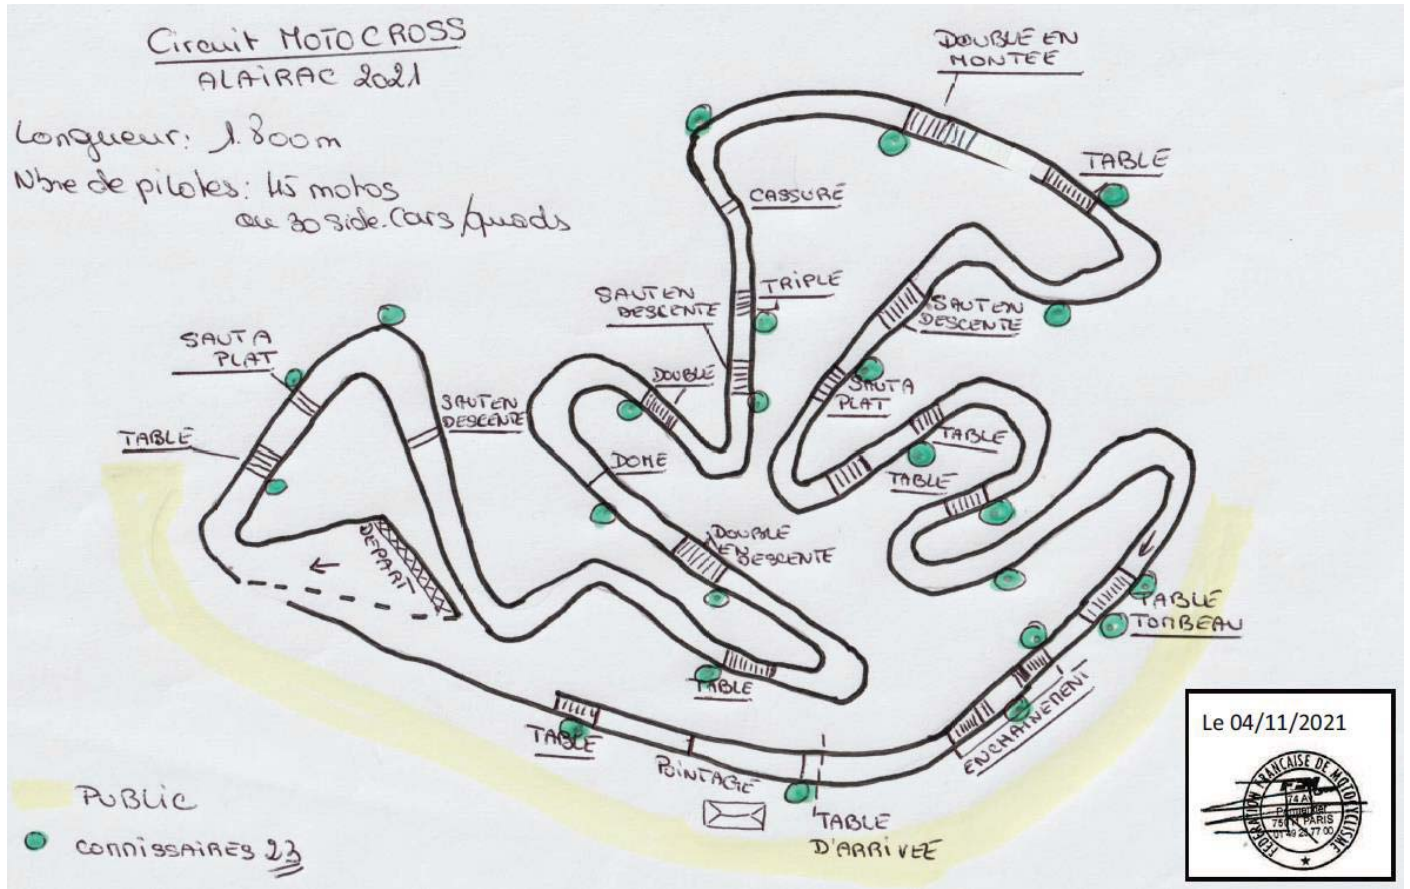 Circuit MOTOCROSS
ALAIRAC 2021
Longueur: 1.800m
Nbre de pilotes: 45 motos
ou 30 side.cars/quads
DOUBLE EN
MONTEE
TABLE
CASSURE
TRIPLE
SAUT EN
DESCENTE
SAUT EN
DESCENTE
SAUT A
PLAT
DOUBLE
SAUT A
PLAT
SAUT EN
DESCENTE
TABLE
TABLE
DOME
TABLE
DOUBLE
EN
DESCENTE
DEPART
TABLE
TOMBEAU
TABLE
ENCHAINEMENT
TABLE
POINTAGE
TABLE
D'ARRIVEE
PUBLIC
COMMISSAIRES 23
Le 04/11/2021
FÉDÉRATION FRANÇAISE DE MOTOCYCLISME
74 Av
Parmentier
PARIS
01 49 23 77 00